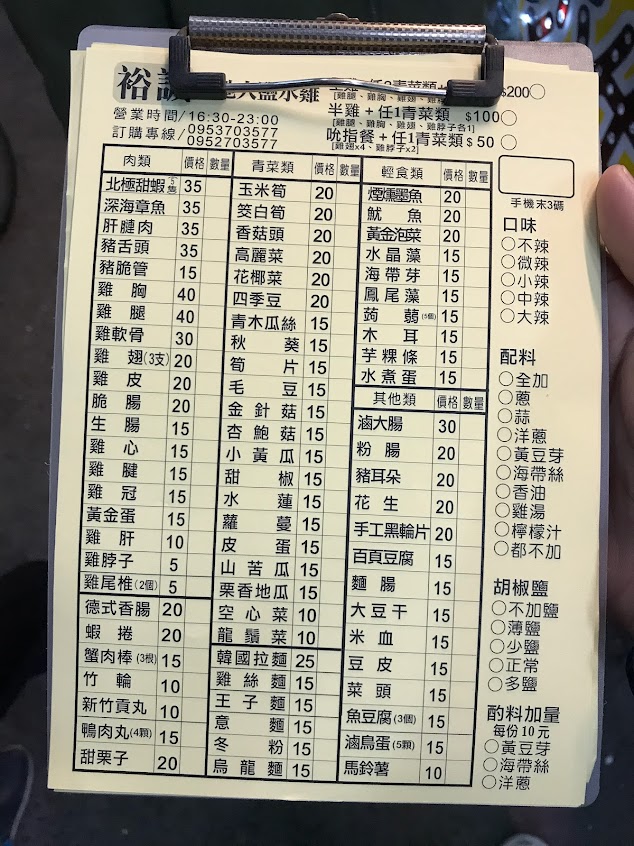 裕誠 大鹽水雞
任2青菜類 $200○
[雞腿、雞胸、雞翅、雞脖子
營業時間/16:30-23:00
訂購專線/0953703577
0952703577
半雞+任1青菜類 $100○
[雞腿、雞胸、雞翅、雞脖子各1]
吮指餐+任1青菜類 $50○
[雞翅x4、雞脖子x2]
肉類 價格 數量
北極甜蝦 5隻 35
深海章魚 35
肝腱肉 35
豬舌頭 35
豬脆管 15
雞胸 40
雞腿 40
雞軟骨 30
雞翅(3支) 20
雞皮 20
脆腸 20
生腸 15
雞心 15
雞腱 15
雞冠 15
黃金蛋 15
雞肝 10
雞脖子 5
雞尾椎(2個) 5
德式香腸 20
蝦捲 20
蟹肉棒(3根) 15
竹輪 10
新竹貢丸 10
鴨肉丸(4顆) 15
甜栗子 20
青菜類 價格 數量
玉米筍 20
筊白筍 20
香菇頭 20
高麗菜 20
花椰菜 20
四季豆 20
青木瓜絲 15
秋葵 15
筍片 15
毛豆 15
金針菇 15
杏鮑菇 15
小黃瓜 15
甜椒 15
水蓮 15
蘿蔓 15
皮蛋 15
山苦瓜 15
栗香地瓜 15
空心菜 10
龍鬚菜 10
韓國拉麵 25
雞絲麵 15
王子麵 15
意麵 15
冬粉 15
烏龍麵 15
輕食類 價格 數量
煙燻墨魚 20
魷魚 20
黃金泡菜 20
水晶藻 15
海帶芽 15
鳳尾藻 15
蒟蒻(5個) 15
木耳 15
芋粿條 15
水煮蛋 15
其他類 價格 數量
滷大腸 30
粉腸 20
豬耳朵 20
花生 20
手工黑輪片 20
百頁豆腐 15
麵腸 15
大豆干 15
米血 15
豆皮 15
菜頭 15
魚豆腐(3個) 15
滷鳥蛋(5顆) 15
馬鈴薯 10
手機末3碼
口味
○不辣
○微辣
○小辣
○中辣
○大辣
配料
○全加
○蔥
○蒜
○洋蔥
○黃豆芽
○海帶絲
○香油
○雞湯
○檸檬汁
○都不加
胡椒鹽
○不加鹽
○薄鹽
○少鹽
○正常
○多鹽
酌料加量
每份10元
○黃豆芽
○海帶絲
○洋蔥